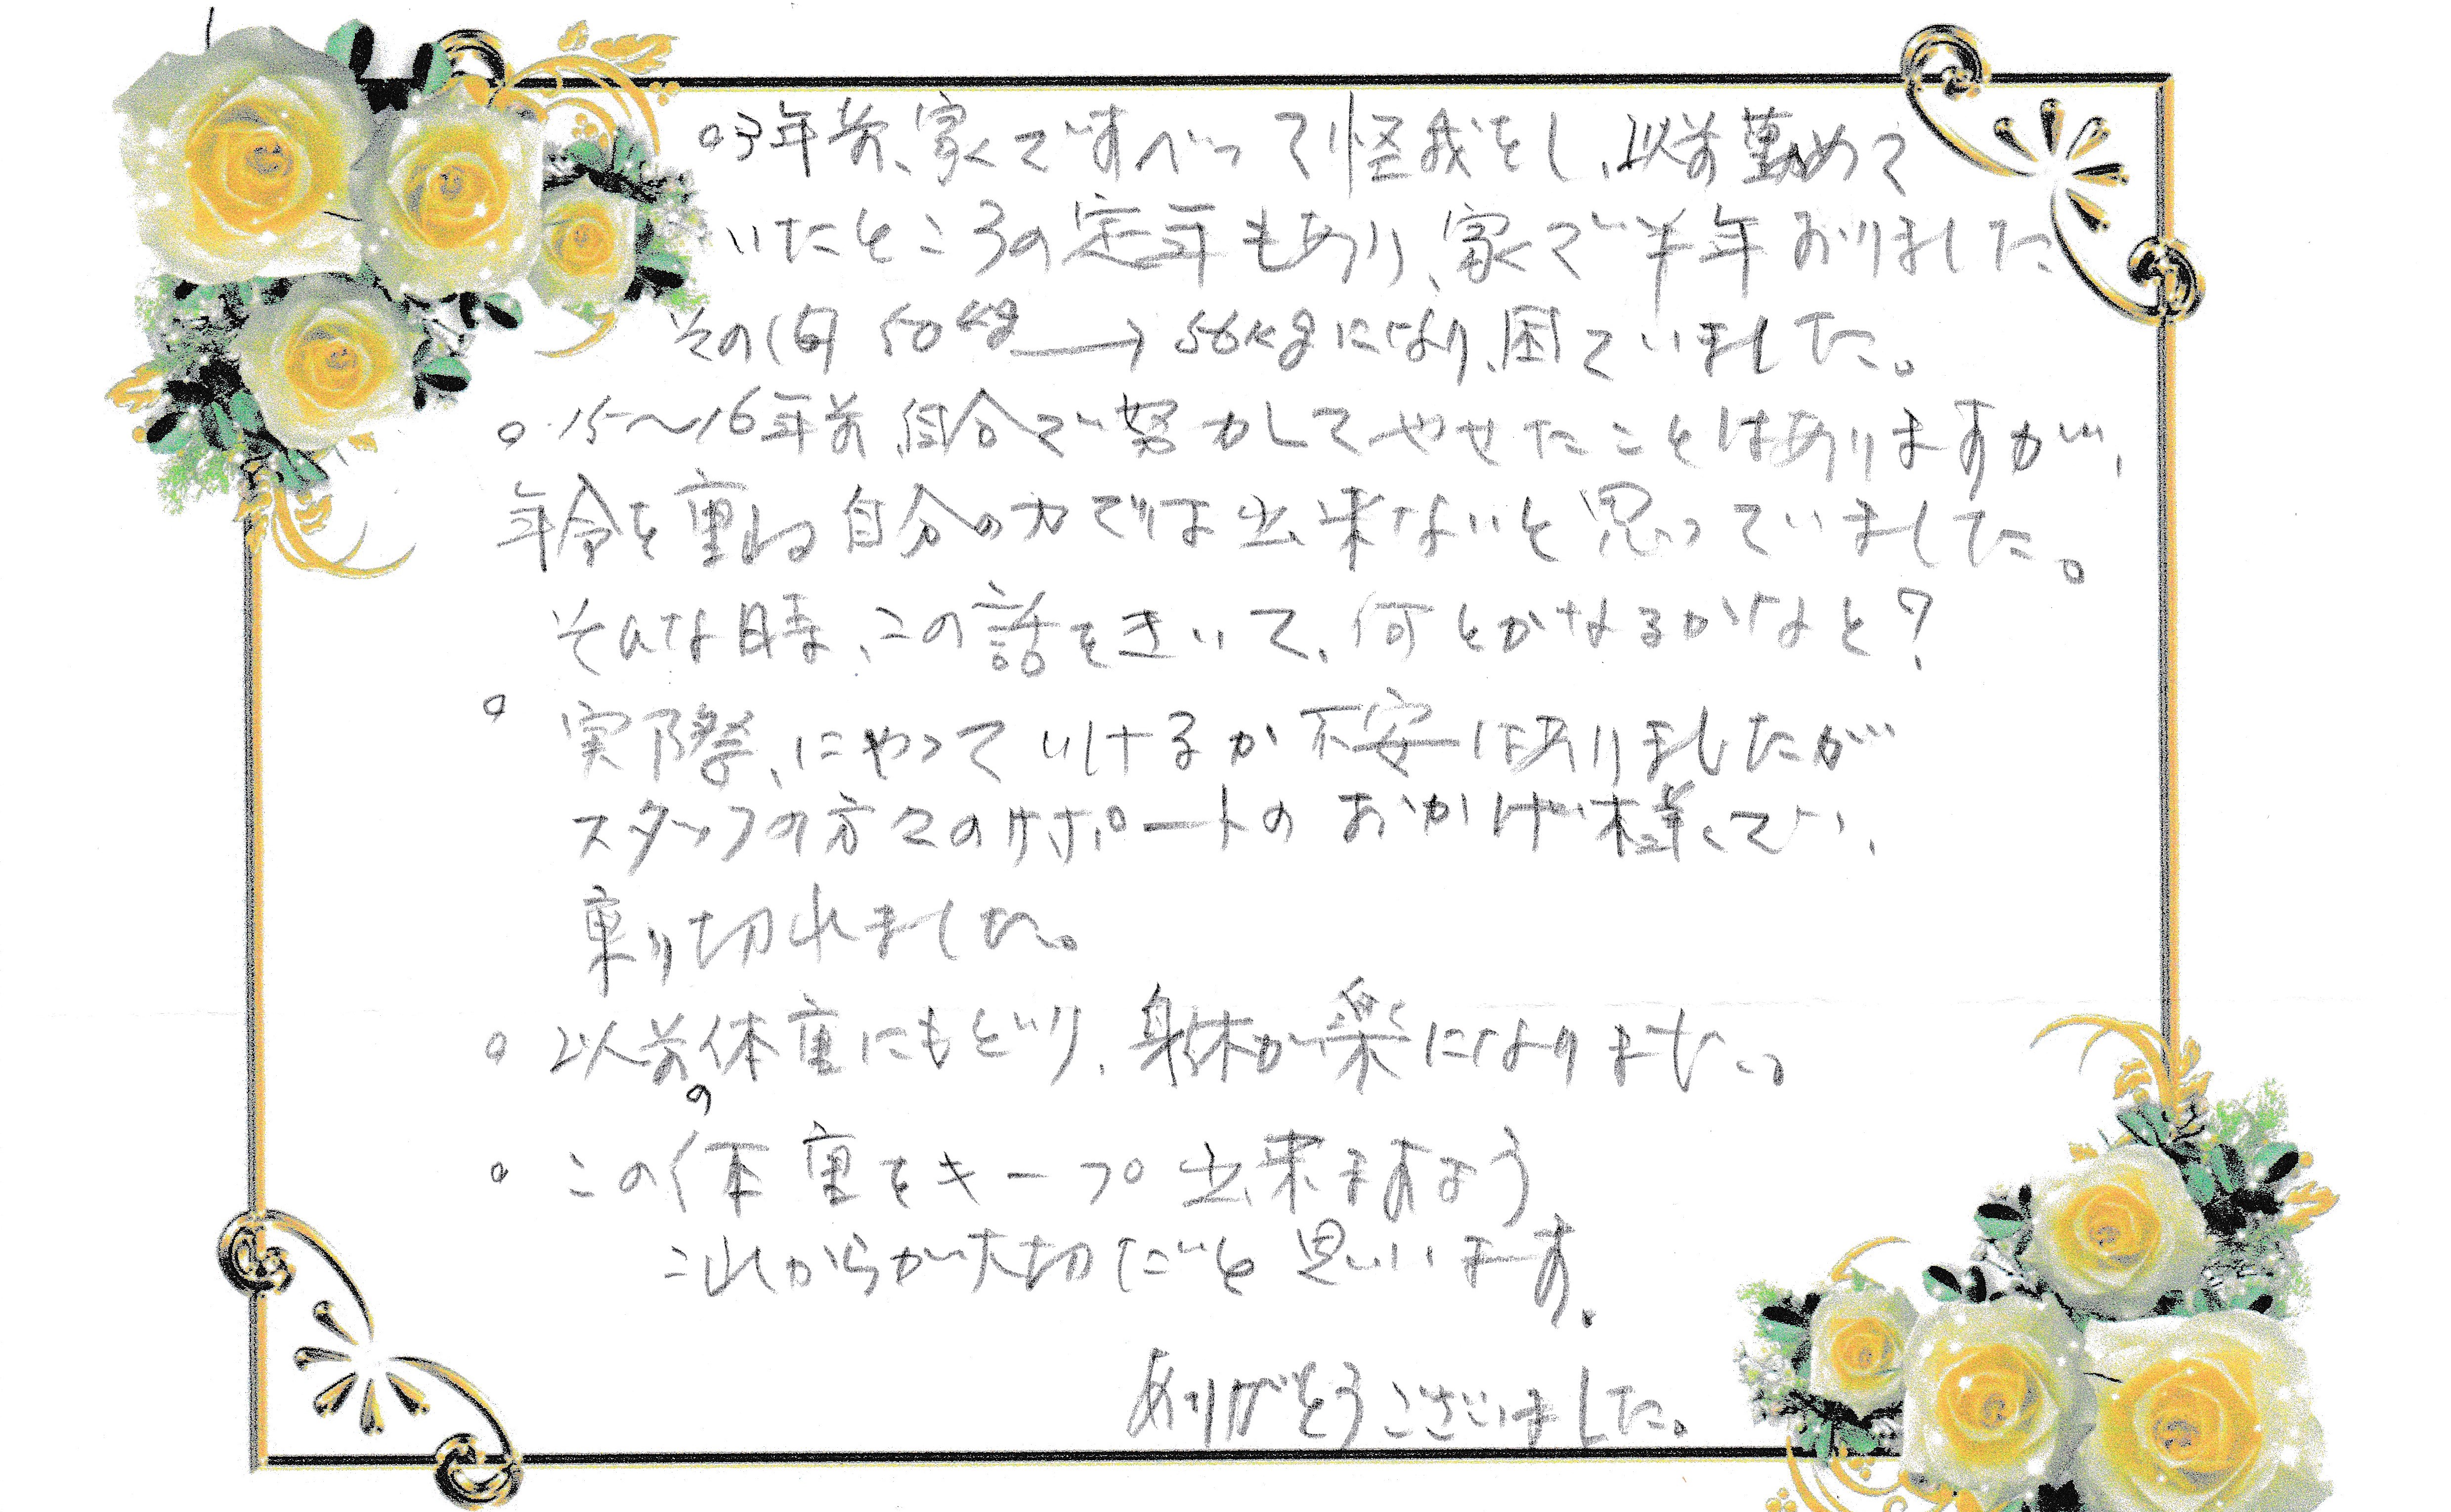 ○3年前、家ですべって怪我をし、以前勤めて
いたところの定年もあり、家で半年おりました
その間 50kg→56kgになり、困ていました。
○15〜16年前、自分で努力してやせたことはありますが、
年令を重ね自分の力では出来ないと思っていました。
そんな時、この話をきいて、何とかなるかなと？
○ 実際、にやっていけるか不安はありましたが
スタッフの方々のサポートのおかげ様で、
乗り切れました。
○ 以前の体重にもどり、身体が楽になりました。
○ この体重をキープ出来ますよう
これからが大切だと思います。
ありがとうございました。